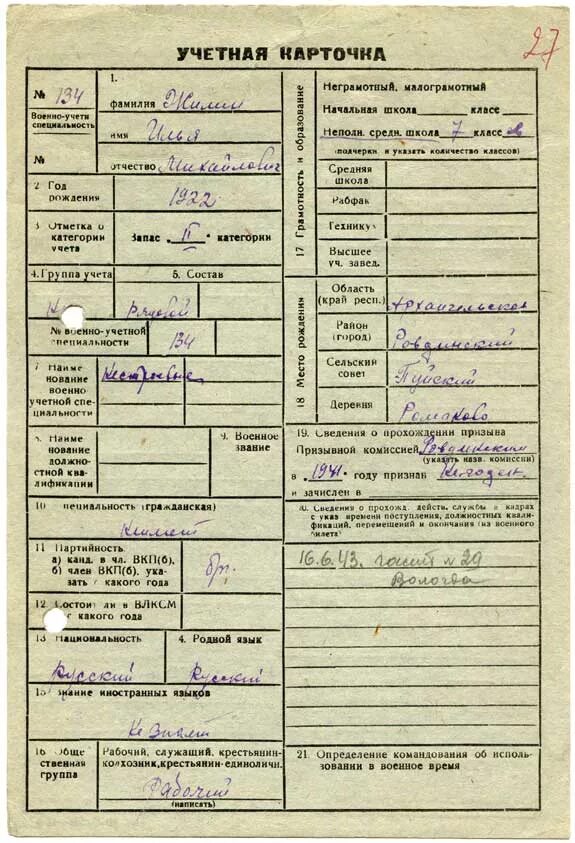 27
УЧЕТНАЯ КАРТОЧКА
№ 134
Военно-учетн
специальность
№
1.
фамилия Жилин
имя Илья
отчество Михайлович
2 Год
рождения
1922
3 Отметка о
категории
учета
Запас II категории
4. Группа учета
5. Состав
Рядовой
№ военно-учетной
специальности
134
7 Наименование
военно-
учетной специальности
Нестроевые
8. Наименование
должностной квалификации
9. Военное
звание
10 специальность (гражданская)
11 Партийность
а) канд. в чл. ВКП(б),
б) член ВКП(б), указать
с какого года
бп.
12. Состоит ли в ВЛКСМ
с какого года
13 Национальность
Русский
4. Родной язык
Русский
15 знание иностранных языков
Не знает
16 Общественная
группа
Рабочий, служащий, крестьянин-
колхозник, крестьянин-единоличн.
Рабочий
(написать)
17 Грамотность и образование
Неграмотный, малограмотный
Начальная школа классе
Неполн. средн. школа 7 класс
(подчеркн и указать количество классов)
Средняя
школа
Рабфак
Техникум
Высшее
уч. завед.
18 Место рождения
Область
(край респ.)
Архангельская
Район
(город)
Ровдинский
Сельский
совет
Пуйский
Деревня
Романово
19. Сведения о прохождении призыва
Призывной комиссией Ровдинский
(указать назв. комиссии)
в 1941 году признан Негоден
и зачислен в
20. Сведения о прохожд. действ. службы в кадрах
с указ времени поступления, должностных квалификаций,
перемещений и окончания (из военного
билета)
16.6.43. госпит №
Вологда
21. Определение командования об использовании
в военное время